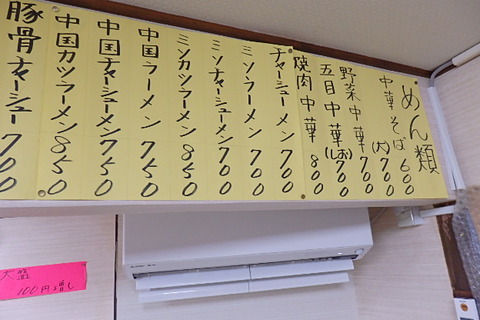 めん類
中華そば 600
(大) 700
野菜中華 700
五目中華(しお) 700
焼肉中華 800
チャーシューメン 700
ミソラーメン 700
ミソチャーシューメン 700
ミソカツラーメン 850
中国ラーメン 750
中国チャーシューメン 750
中国カツラーメン 850
豚骨チャーシュー 700
大盛
100円増し